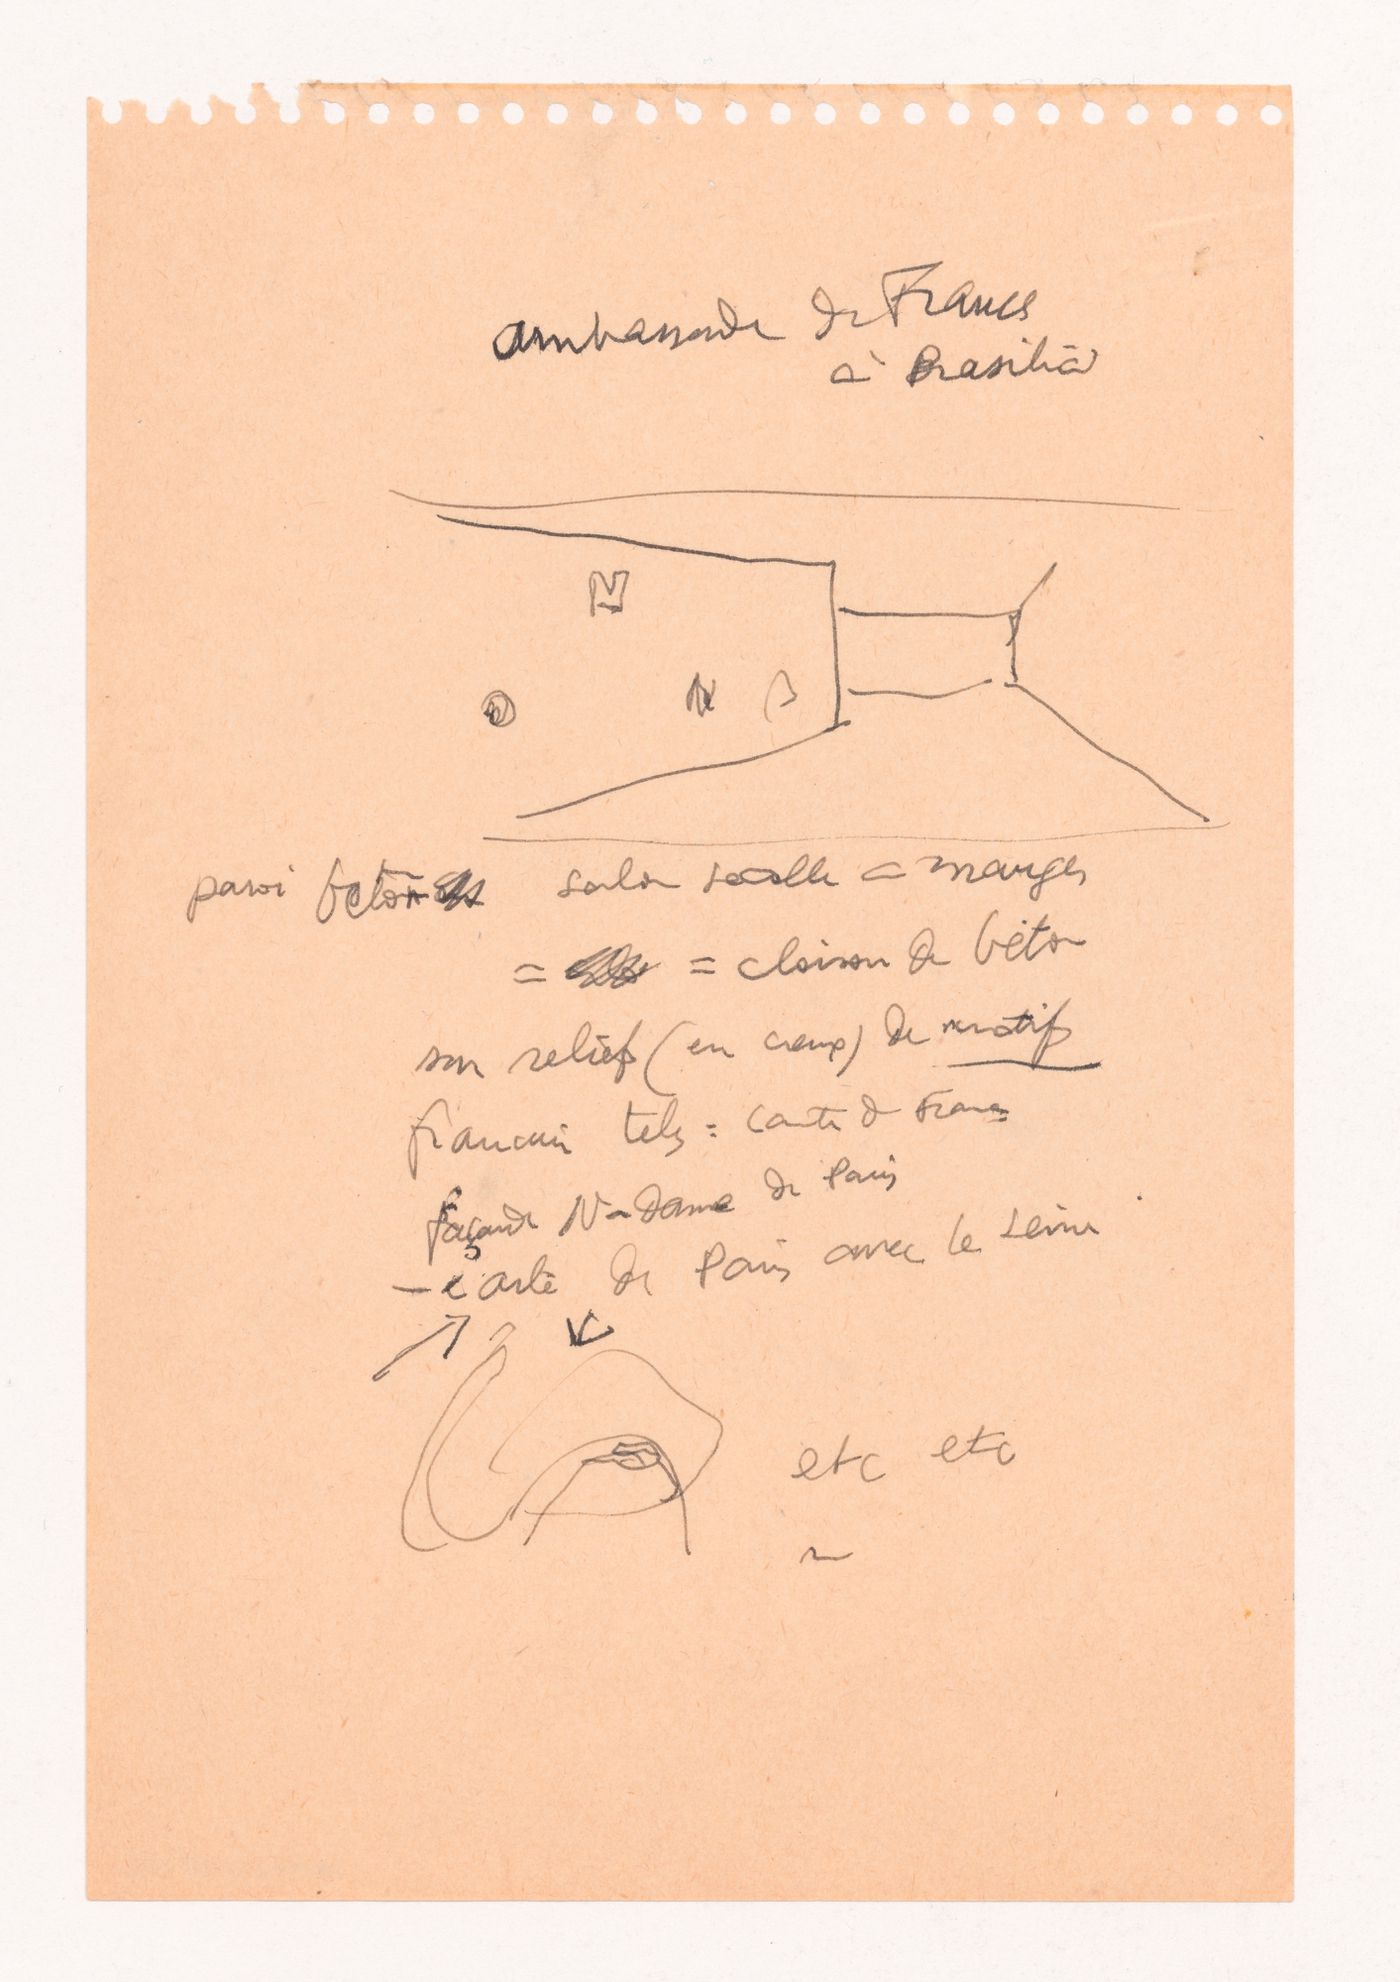 ambassade de France
à Brasilia
paroi béton salon salle = manger
= = cloison de béton
relief (en creux) de motifs
français tels = carte d France
façade N-Dame de Paris
– carte de Paris avec le seine
etc etc